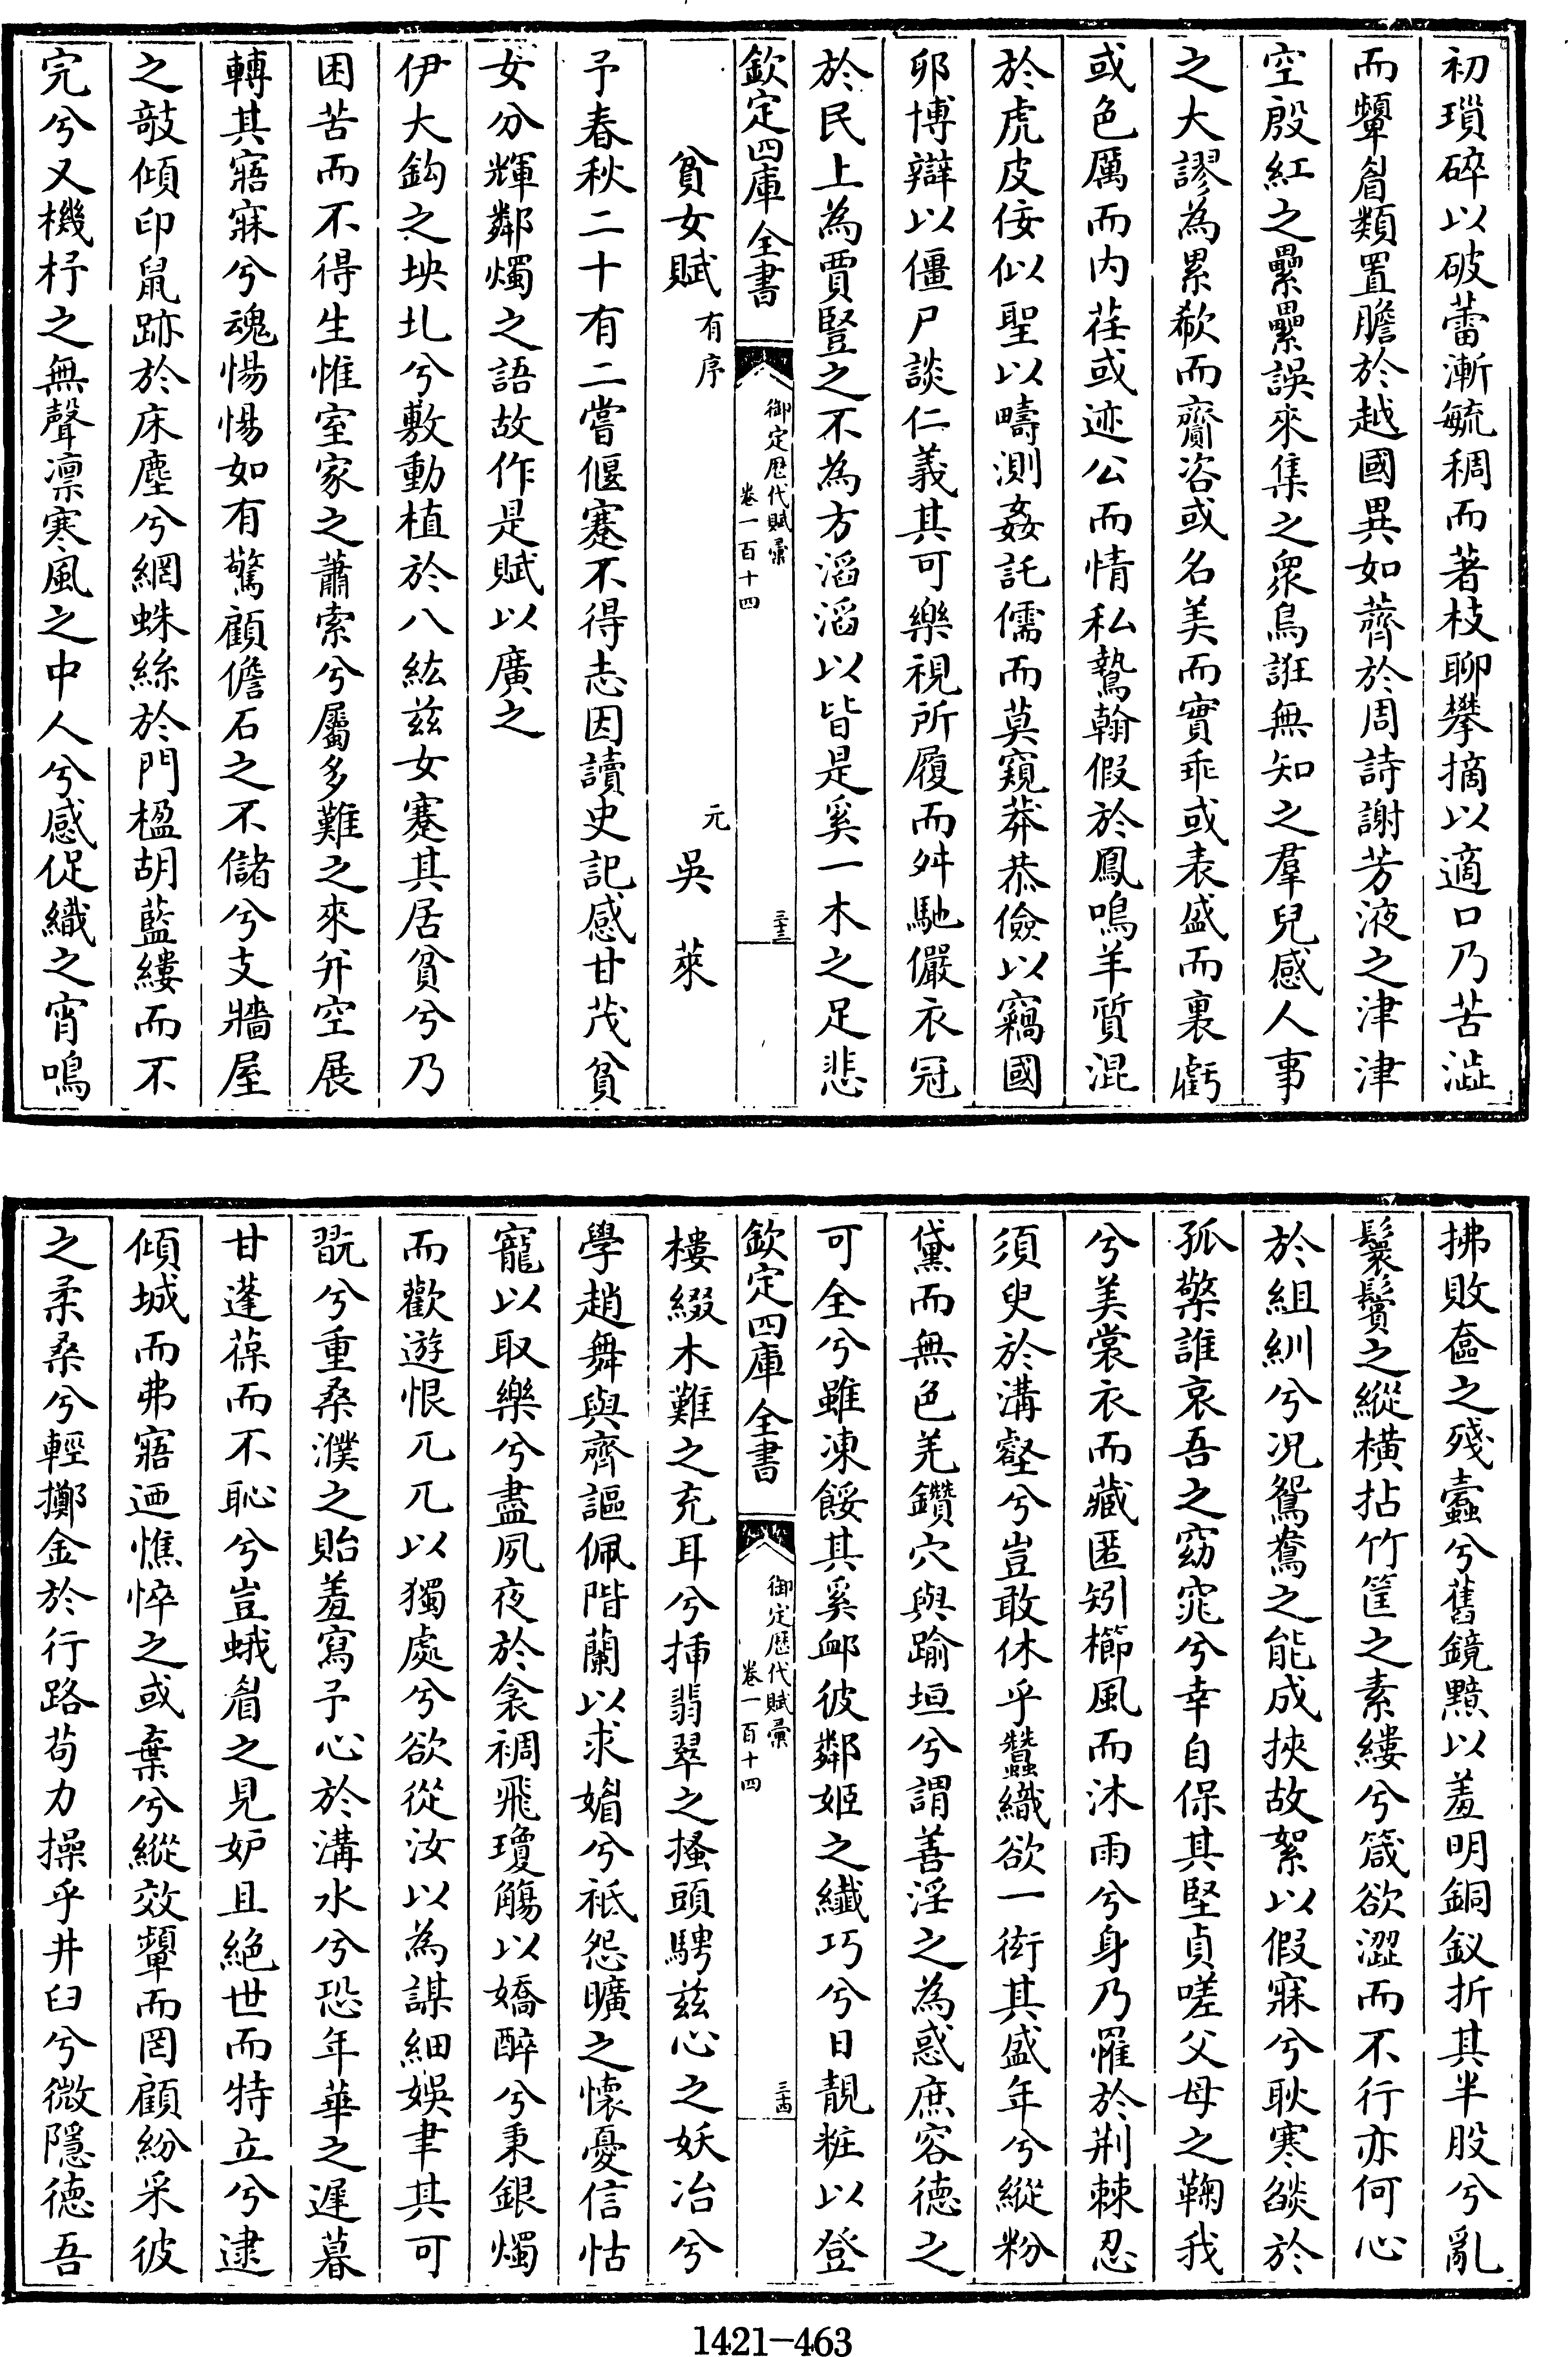 初瑣碎以破蕾漸毓稠而著枝聊攀摘以適口乃苦澁
而顰眉類置膽於越國異如薺於周詩謝芳液之津津
空殷紅之纍纍誤來集之衆鳥誑無知之羣兒感人事
之大謬為累欷而齎咨或名美而實乖或表盛而裏虧
或色厲而内荏或迹公而情私鷙翰假於鳳鳴羊質混
於虎皮佞似聖以疇測姦託儒而莫窺莽恭儉以竊國
卯博辯以僵尸談仁義其可樂視所履而舛馳儼衣冠
於民上為賈豎之不為方滔滔以皆是奚一木之足悲
欽定四庫全書
御定歷代賦彙
卷一百十四
三十三
貧女賦有序
元吳萊
予春秋二十有二嘗偃蹇不得志因讀史記感甘茂貧
女分輝鄰燭之語故作是賦以廣之
伊大鈞之坱圠兮敷動植於八紘茲女蹇其居貧兮乃
困苦而不得生惟室家之蕭索兮屬多難之來并空展
轉其寤寐兮魂惕惕如有驚顧儋石之不儲兮支牆屋
之敲傾印鼠跡於床塵兮網蛛絲於門楹胡藍縷而不
完兮又機杼之無聲凛寒風之中人兮感促織之宵鳴
拂敗奩之殘蠹兮舊鏡黯以羞明銅釵折其半股兮亂
鬟鬢之縱橫拈竹筐之素縷兮箴欲澀而不行亦何心
於組紃兮况鴛鴦之能成挾故絮以假寐兮耿寒燄於
孤檠誰哀吾之窈窕兮幸自保其堅貞嗟父母之鞠我
兮美裳衣而藏匿矧櫛風而沐雨兮身乃罹於荆棘忍
須臾於溝壑兮豈敢休乎蠶織欲一衒其盛年兮縱粉
黛而無色羌鑽穴與踰垣兮謂善淫之為惑庶容德之
可全兮雖凍餒其奚䘏彼鄰姬之纖巧兮日靚粧以登
欽定四庫全書
御定歷代賦彙
卷一百十四
三十四
樓綴木難之充耳兮揷翡翠之搔頭騁兹心之妖冶兮
學趙舞與齊謳佩階蘭以求媚兮祇怨曠之懷憂信怙
寵以取樂兮盡夙夜於衾裯飛瓊觴以嬌醉兮秉銀燭
而歡遊恨兀兀以獨處兮欲從汝以為謀細娛聿其可
翫兮重桑濮之貽羞寫予心於溝水兮恐年華之遲暮
甘蓬葆而不恥兮豈蛾眉之見妒且絶世而特立兮逮
傾城而弗寤迺憔悴之或棄兮縱效顰而罔顧紛采彼
之柔桑兮輕擲金於行路苟力操乎井臼兮微隱德吾
1421-463